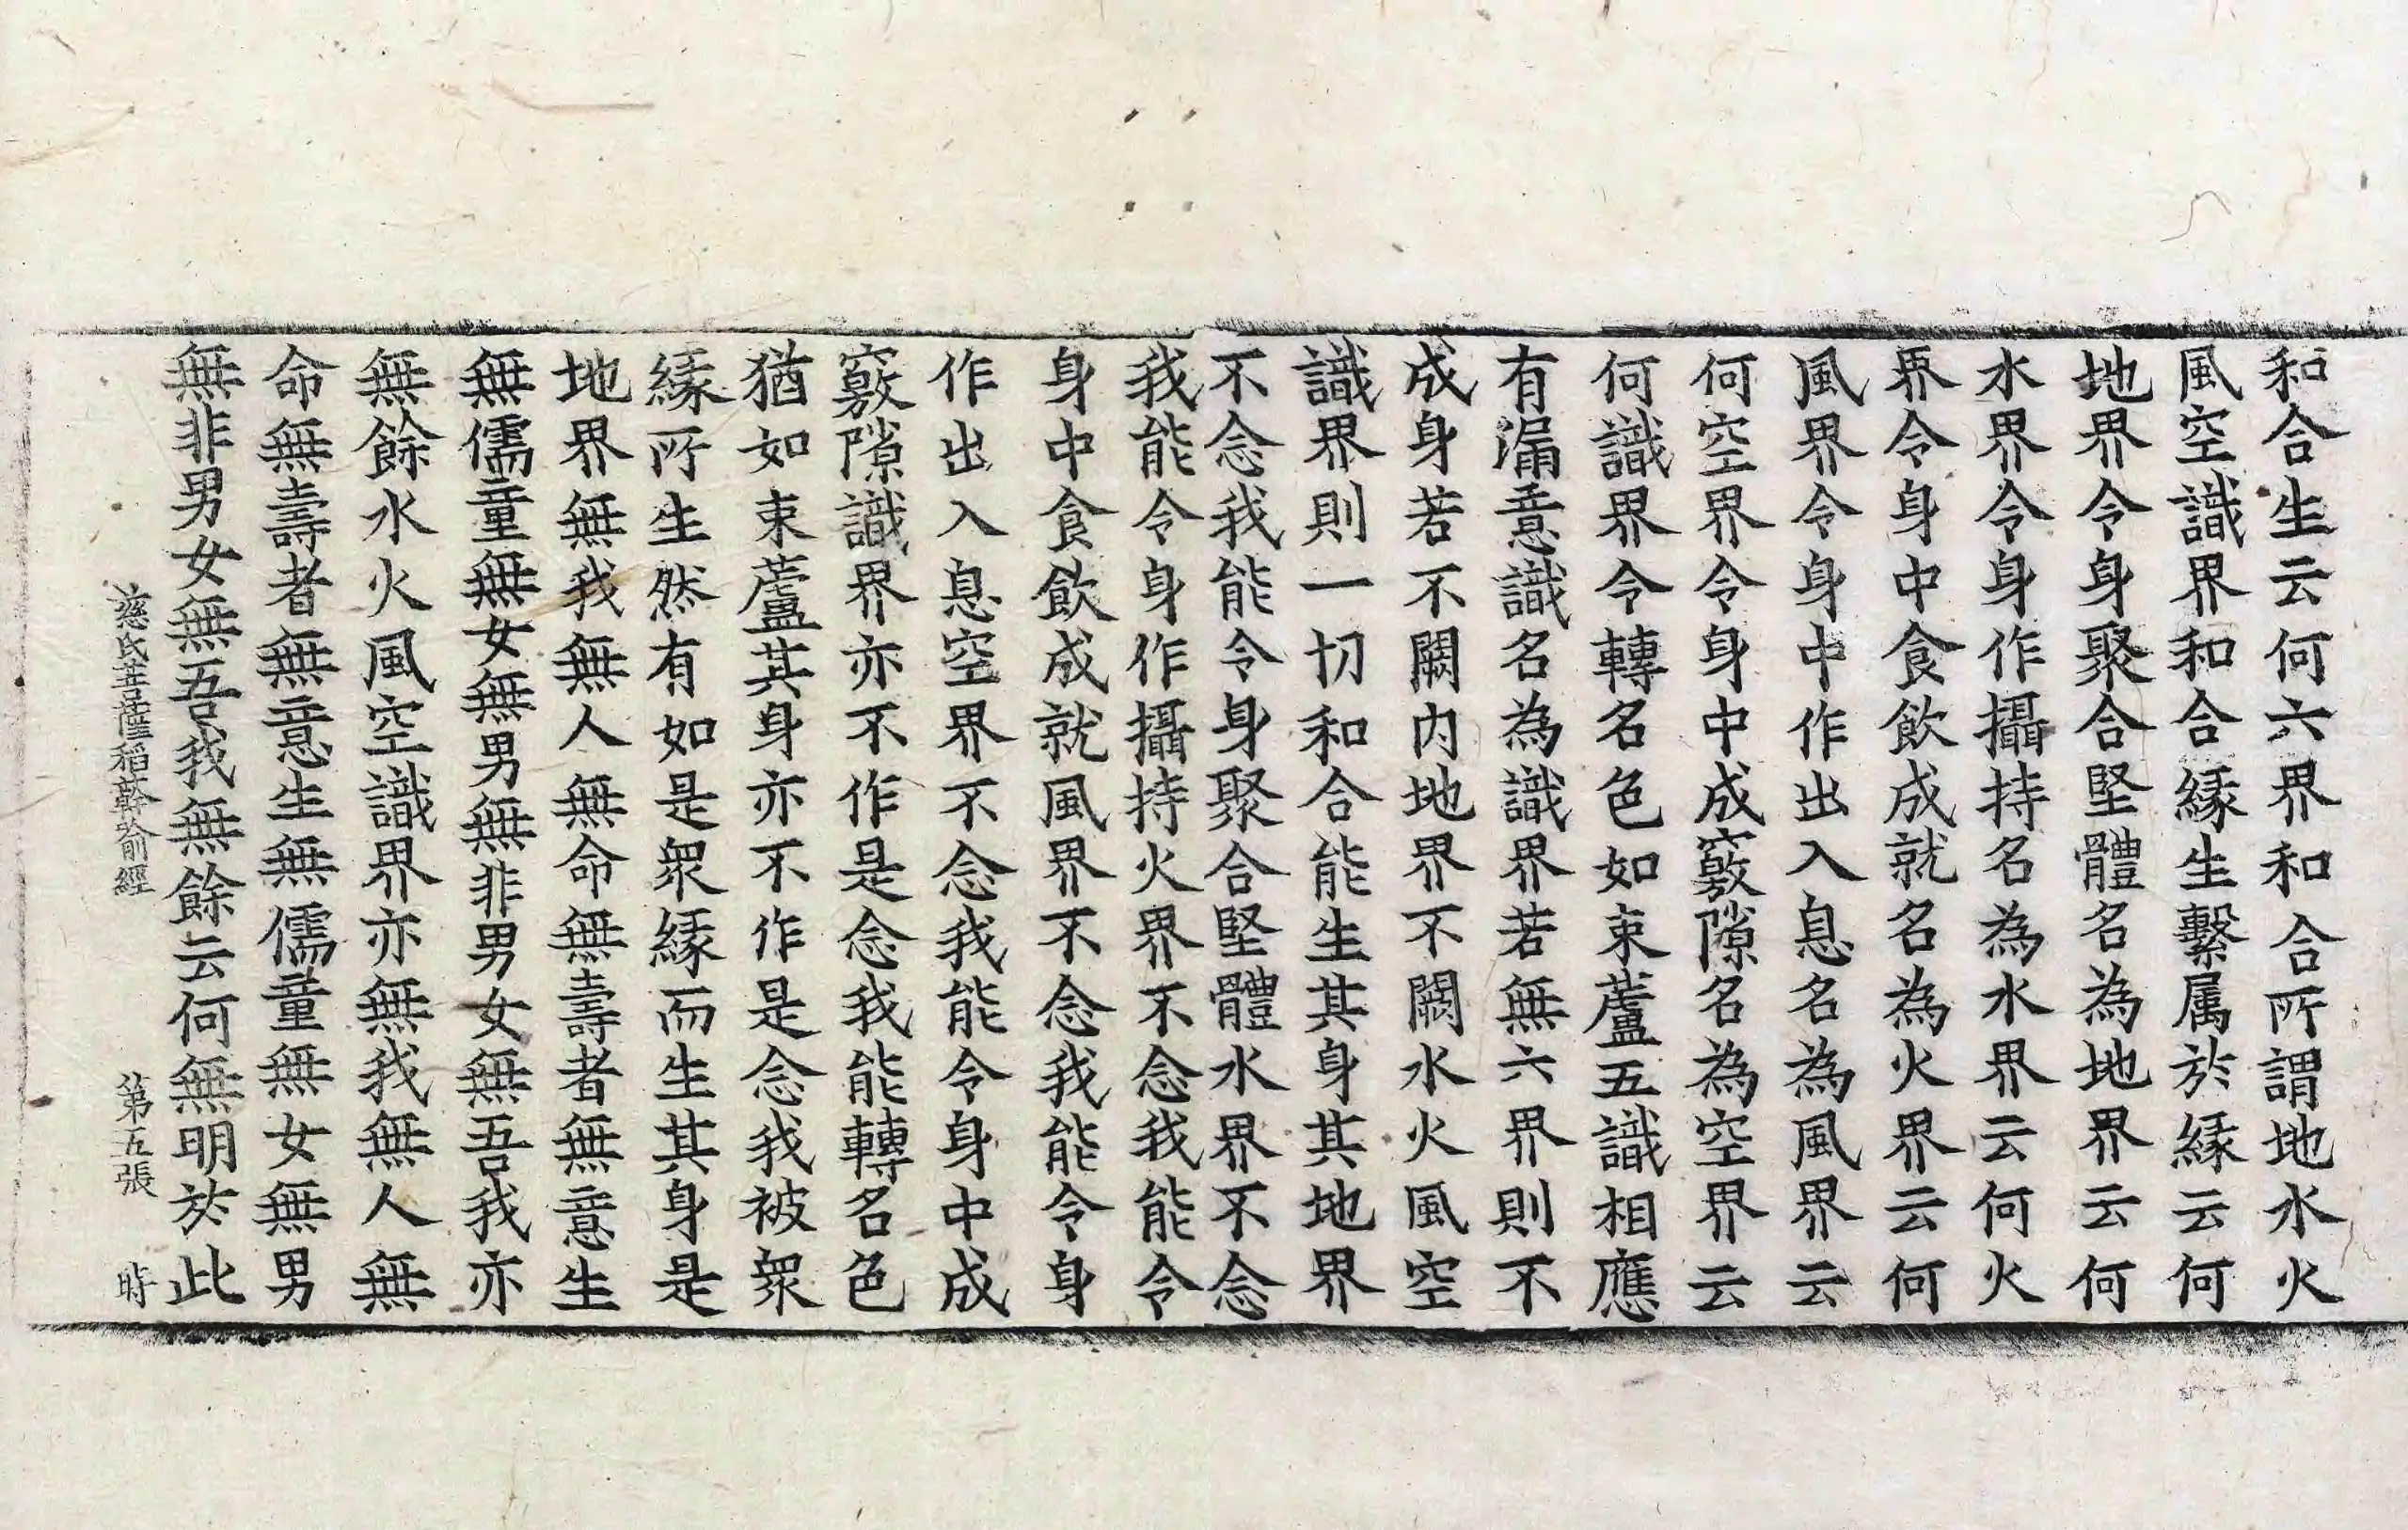 和合生云何六界和合所謂地水火
風空識界和合緣生繫属於緣云何
地界令身聚合堅體名為地界云何
水界令身作攝持名為水界云何火
界令身中食飲成就名為火界云何
風界令身中作出入息名為風界云
何空界令身中成竅隙名為空界云
何識界令轉名色如束蘆五識相應
有漏意識名為識界若無六界則不
成身若不闕内地界不闕水火風空
識界則一切和合能生其身其地界
不念我能令身聚合堅體水界不念
我能令身作攝持火界不念我能令
身中食飲成就風界不念我能令身
作出入息空界不念我能令身中成
竅隙識界亦不作是念我能轉名色
猶如束蘆其身亦不作是念我被衆
緣所生然有如是衆緣而生其身是
地界無我無人無命無壽者無意生
無儒童無女無男無非男女無吾我亦
無餘水火風空識界亦無我無人無
命無壽者無意生無儒童無女無男
無非男女無吾我無餘云何無明於此
慈氏菩薩稻䕀喻經 第五張 時